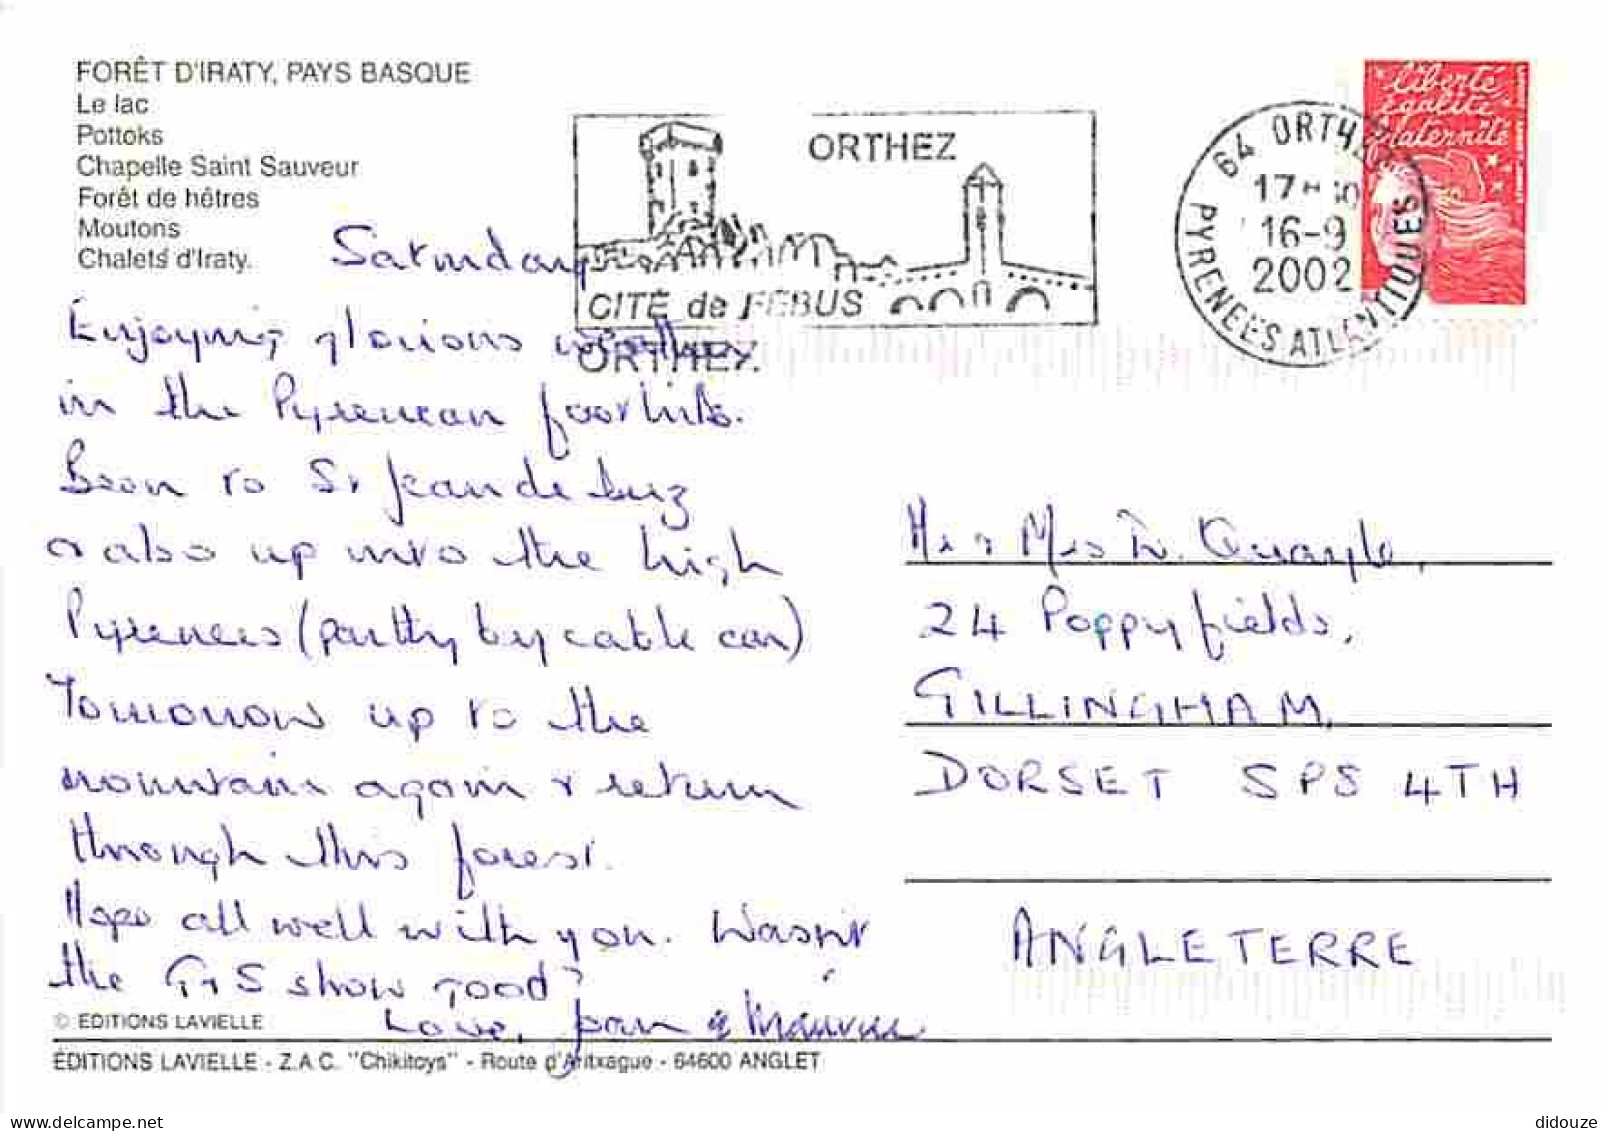 FORÊT D'IRATY, PAYS BASQUE
Le lac
Pottoks
Chapelle Saint Sauveur
Forêt de hêtres
Moutons
Chalets d'Iraty.
ORTHEZ
CITÉ de FÉBUS
ORTHEZ
64 ORTHEZ
17H
16-9
2002
PYRENEES ATLANTIQUES
Liberté
égalité
fraternité
Saturday
Enjoying glorious weather
in the Pyrenean foothills.
Been to St Jean de Luz
& also up into the high
Pyrenees (partly by cable car)
Tomorrow up to the
mountains again & return
through this forest.
Hope all well with you. Wasn't
the G&S show good?
Love, Joan &
Mr & Mrs Quayle,
24 Poppyfields,
GILLINGHAM,
DORSET SP8 4TH
ANGLETERRE
© EDITIONS LAVIELLE
ÉDITIONS LAVIELLE - Z.A.C. "Chikitoys" - Route d'Aritxague - 64600 ANGLET
didouze